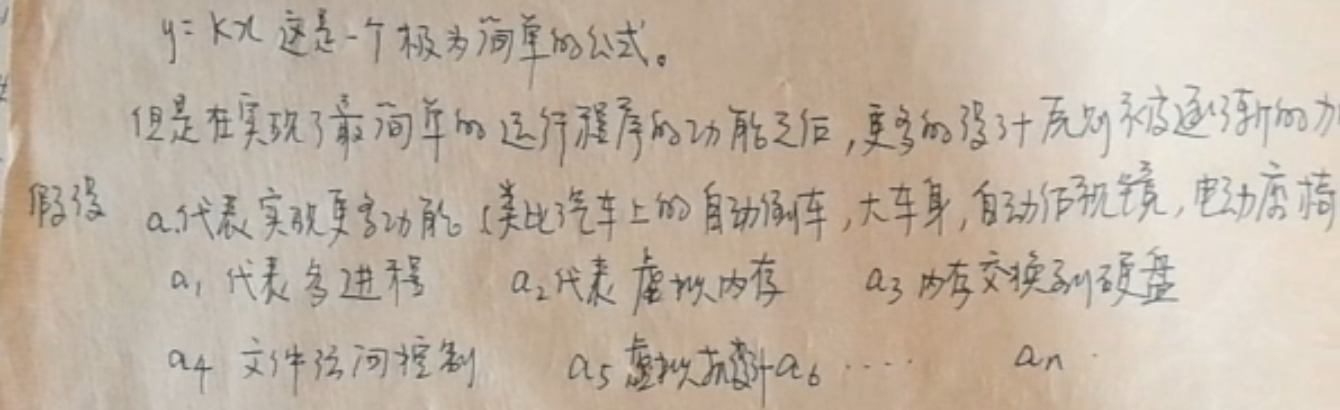 y=kx 这是一个极为简单的公式。
但是在实现了最简单的运行程序的功能之后,更多的设计原则被逐渐的加
假设 a.代表实现更多功能(类比汽车上的自动倒车,大车身,自动后视镜,电动座椅
a1 代表多进程 a2代表 虚拟内存 a3 内存交换到硬盘
a4 文件访问控制 a5 虚拟 a6 ····· an